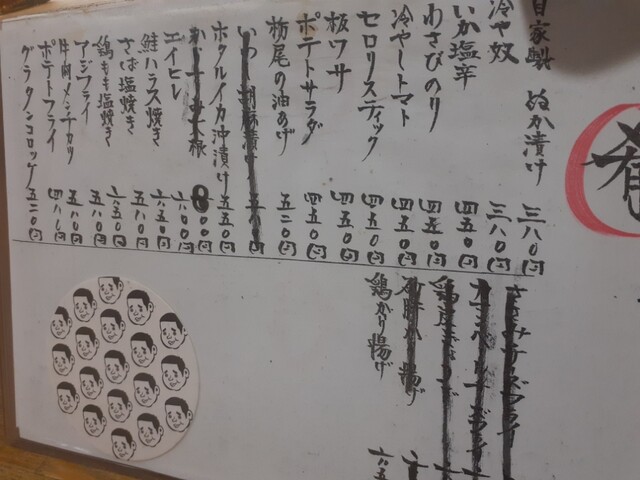 肴
自家製 ぬか漬け 三八〇円
冷や奴 三八〇円
いか塩辛 四五〇円
わさびのり 四五〇円
冷やしトマト 四五〇円
セロリスティック 四五〇円
板ワサ 四五〇円
ポテトサラダ 四五〇円
栃尾の油あげ 五二〇円
ホタルイカ沖漬け 五五〇円
エイヒレ 六〇〇円
鮭ハラス焼き 六五〇円
さば塩焼き 五八〇円
鶏もも塩焼き 六五〇円
アジフライ 五八〇円
牛肉メンチカツ 五八〇円
ポテトフライ 四八〇円
グラタンコロッケ 五二〇円
鶏から揚げ